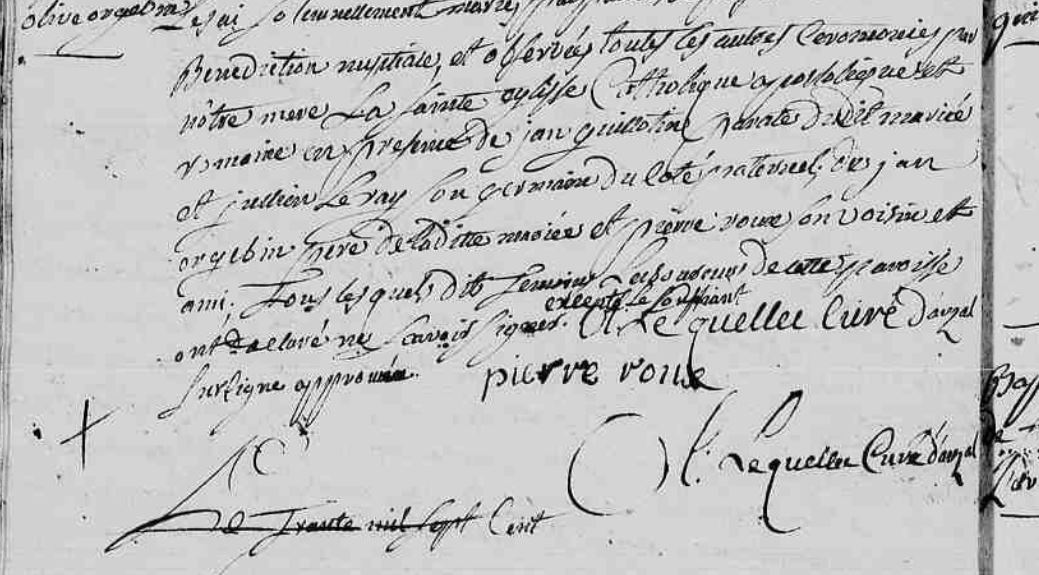 olive orgebin
Le jai solemnellement mariés
Benediction nuptiale, et observées toutes les autres Ceremonies par
nôtre mere La sainte eglise Catholique apostolique et
romaine en presence de jan guillotin parate dudit mariée
et jullien Le ray son germain du coté paternel, de jan
orgebin pere de laditte mariée et pierre roux son voisin et
ami, Tous lesquels dits Temoins Laboureurs de cette paroisse
excepté Le soussignant
ont declaré ne scavoir signer. Le quellec Curé d'arzal
surligne approuvée.
pierre roux
Le quellec Curé d'arzal
Le Trante mil sept Cent